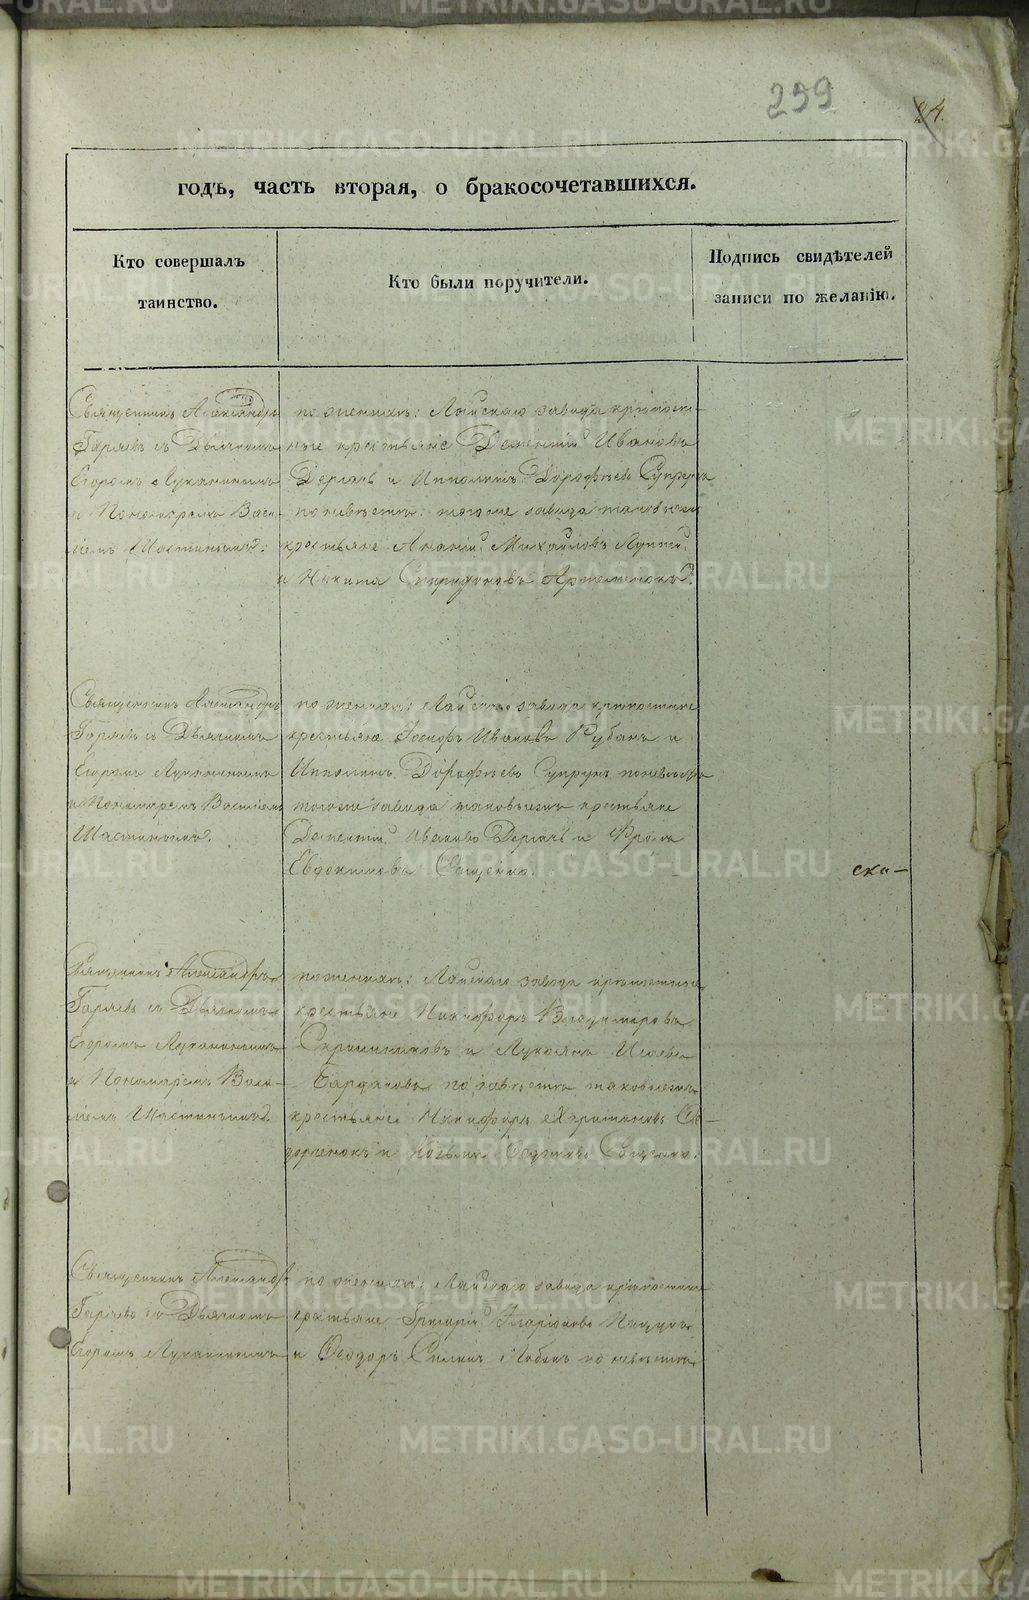 METRIKI.GASO-URAL.RU
239
24.
годъ, часть вторая, о бракосочетавшихся.
Кто совершалъ
таинство.
Кто были поручители.
Подпись свидѣтелей
записи по желанію.
Священникъ Александръ
Гаряевъ съ Дьячкомъ
Егоромъ Луканинымъ
и Пономаремъ Васи-
ліемъ Шастинымъ.
по женихѣ: Лайскаго завода крѣпост-
ные крестьяне Дементій Ивановъ
Дергачъ и Ипполитъ Дорофѣевъ Супрунъ
по невѣстѣ: тогоже завода таковыежъ
крестьяне Ананій Михайловъ
и Никита Спиридоновъ Артеменокъ.
Священникъ Александръ
Гаряевъ съ Дьячкомъ
Егоромъ Луканинымъ
и Пономаремъ Василіемъ
Шастинымъ.
по женихѣ: Лайскаго завода крѣпостные
крестьяне Іосифъ Ивановъ Рубанъ и
Ипполитъ Дорофѣевъ Супрунъ по невѣстѣ
тогоже завода таковыежъ крестьяне
Дементій Ивановъ Дергачъ и Фролъ
Евдокимовъ Сащенко.
ска-
Священникъ Александръ
Гаряевъ съ Дьячкомъ
Егоромъ Луканинымъ
и Пономаремъ Васи-
ліемъ Шастинымъ.
по женихѣ: Лайскаго завода крѣпостные
крестьяне Никифоръ Владиміровъ
и Лукіянъ Исаевъ
по невѣстѣ таковыежъ
крестьяне Никифоръ Харитоновъ Си-
доренокъ и Козьма Федотовъ
Священникъ Александръ
Гаряевъ съ Дьячкомъ
Егоромъ Луканинымъ
по женихѣ: Лайскаго завода крѣпостные
крестьяне Григорій Иларіоновъ
и Ѳеодоръ Силинъ Лобанъ по невѣстѣ